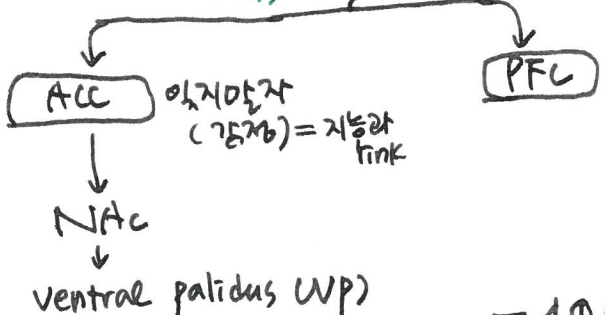 ACC 잊지말자 PFC
(감정) = 지능과
link
NAc
ventral palidus (VP)